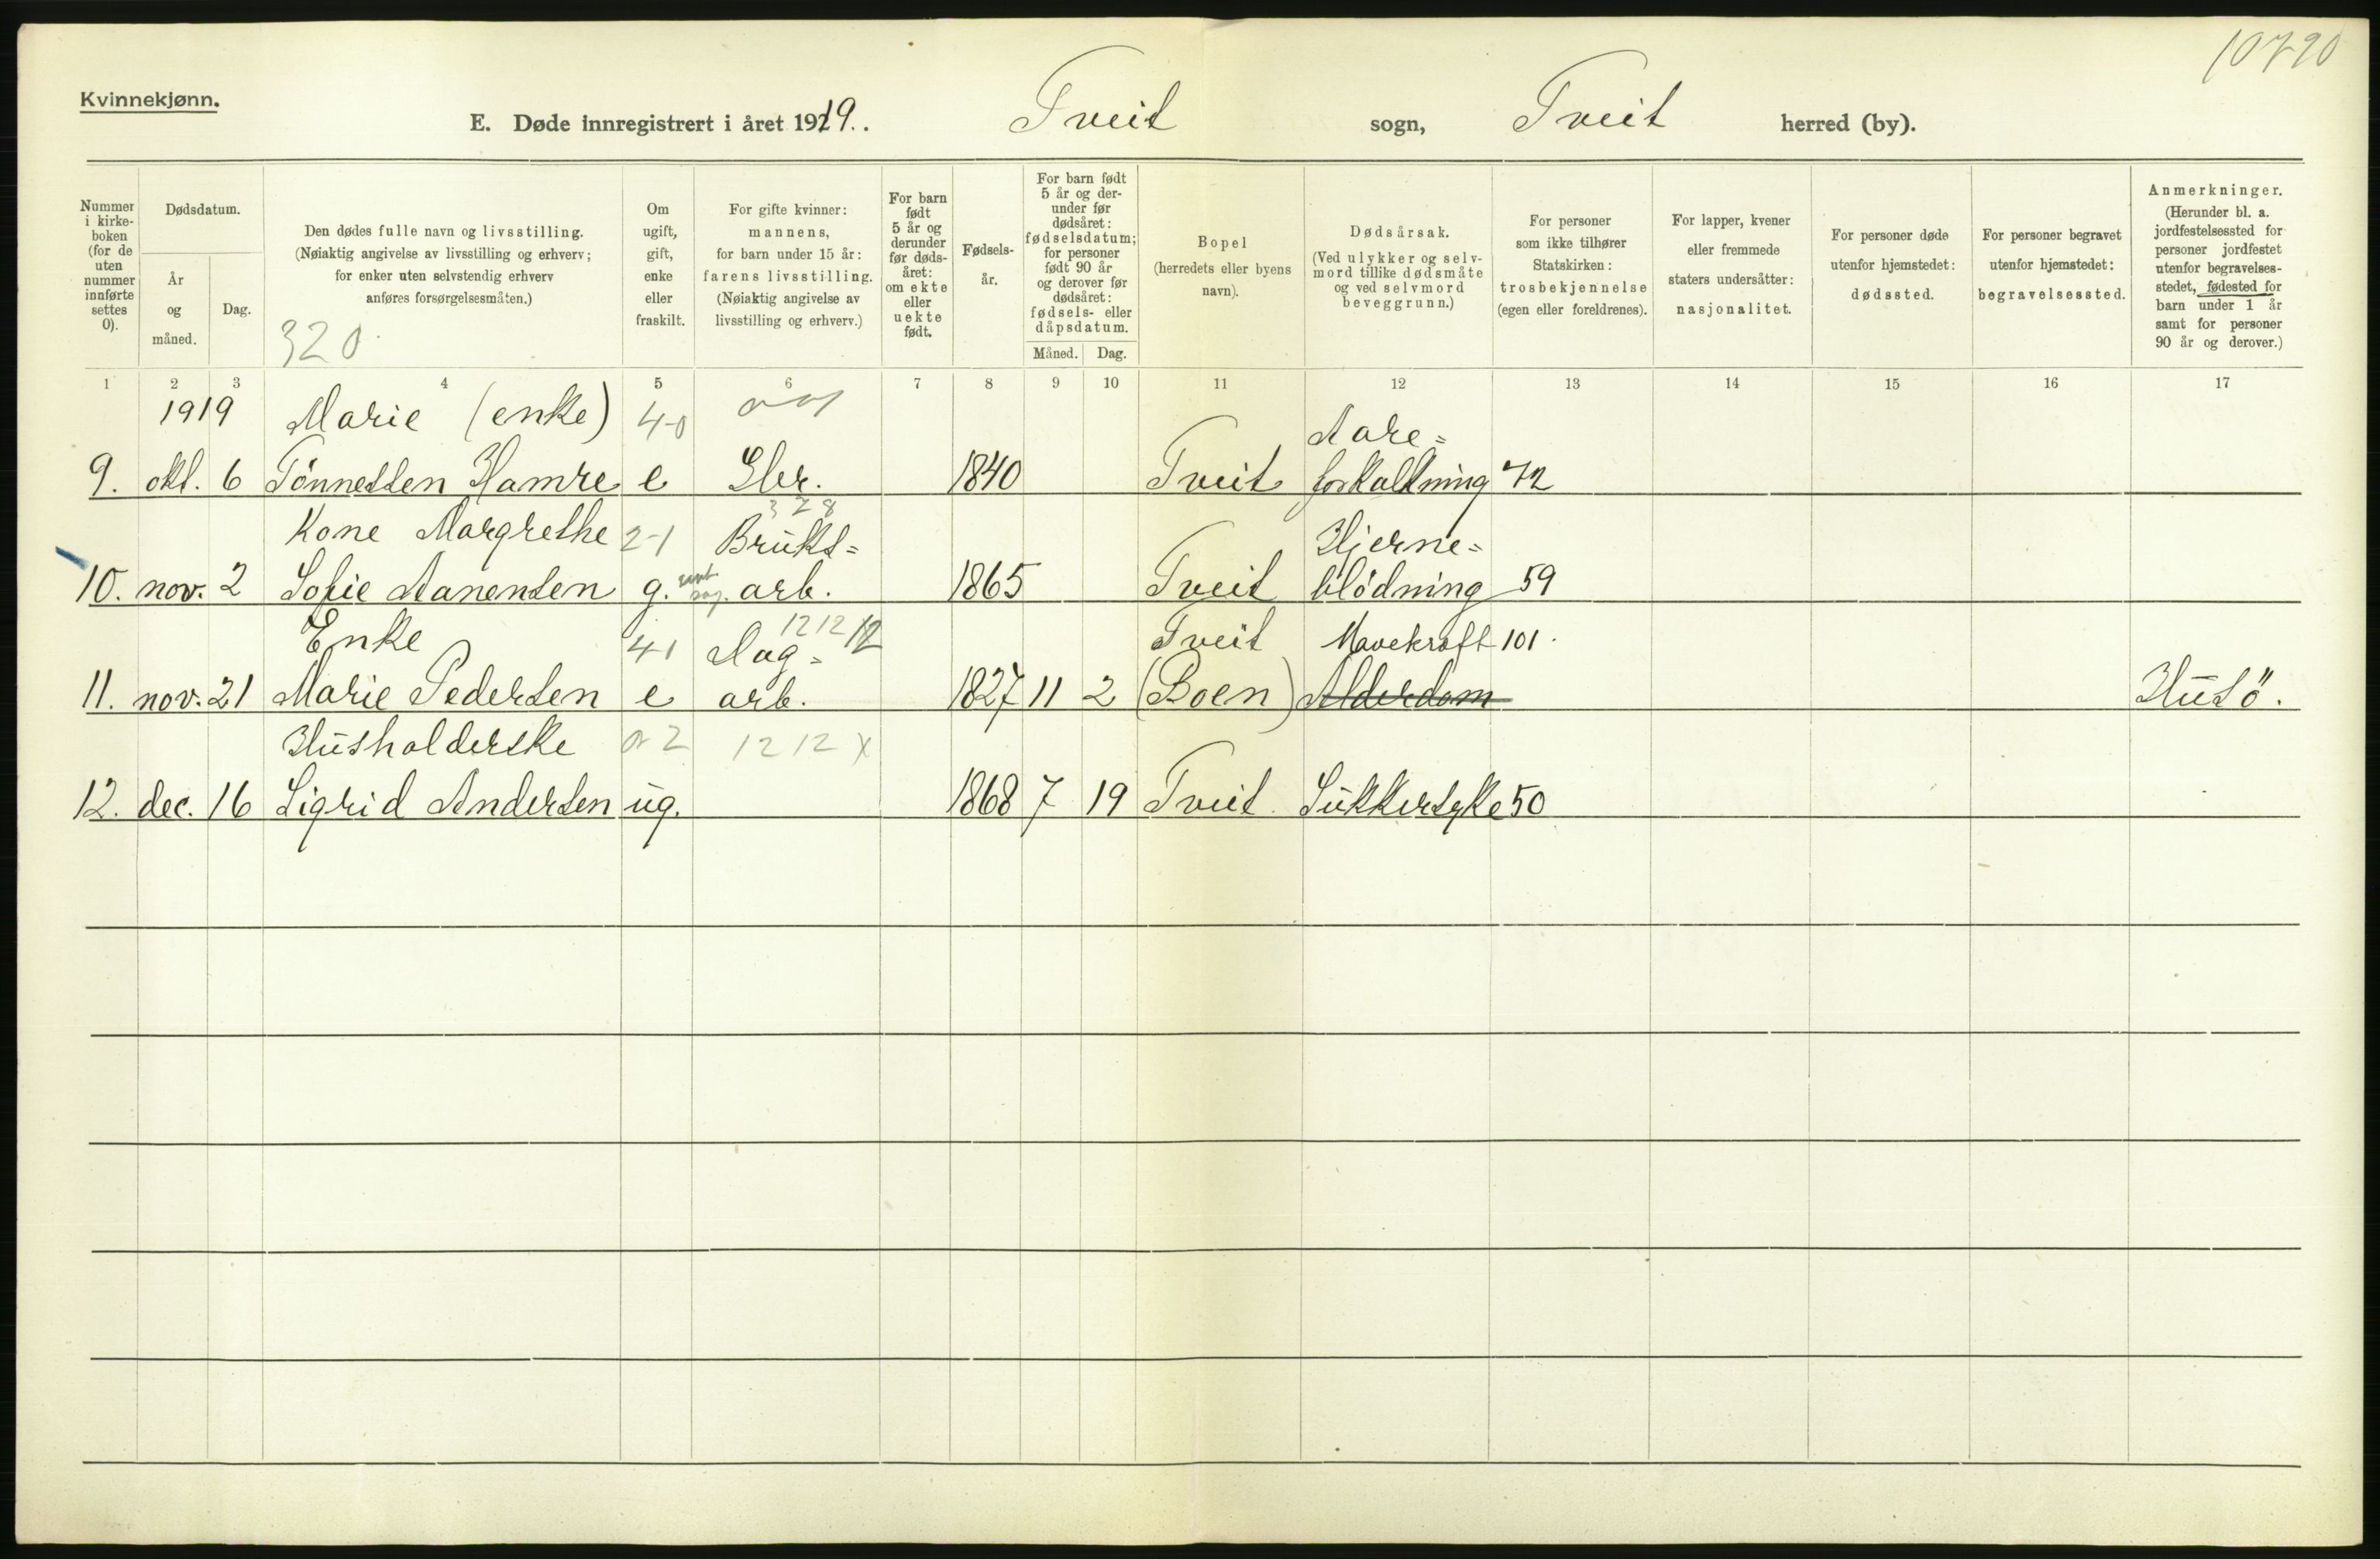 10790
Kvinnekjønn.
E. Døde innregistrert i året 1919. Tveit sogn, Tveit herred (by).
Nummer i kirkeboken (for de uten nummer innførte settes 0).
Dødsdatum.
År og måned.
Dag.
Den dødes fulle navn og livsstilling.
(Nøiaktig angivelse av livsstilling og erhverv;
for enker uten selvstendig erhverv
anføres forsørgelsesmåten.)
320
Om ugift, gift, enke eller fraskilt.
For gifte kvinner:
mannens,
for barn under 15 år:
farens livsstilling.
(Nøiaktig angivelse av
livsstilling og erhverv.)
For barn født 5 år og derunder før dødsåret: om ekte eller uekte født.
Fødselsår.
For barn født 5 år og derunder før dødsåret: fødselsdatum; for personer født 90 år og derover før dødsåret: fødsels- eller dåpsdatum.
Måned. Dag.
Bopel
(herredets eller byens
navn).
Dødsårsak.
(Ved ulykker og selv-
mord tillike dødsmåte
og ved selvmord
beveggrunn.)
For personer
som ikke tilhører
Statskirken:
trosbekjennelse
(egen eller foreldrenes).
For lapper, kvener
eller fremmede
staters undersåtter:
nasjonalitet.
For personer døde
utenfor hjemstedet:
dødssted.
For personer begravet
utenfor hjemstedet:
begravelsessted.
Anmerkninger.
(Herunder bl. a.
jordfestelsessted for
personer jordfestet
utenfor begravelses-
stedet, fødested for
barn under 1 år
samt for personer
90 år og derover.)
1 2 3 4 5 6 7 8 9 10 11 12 13 14 15 16 17
1919 Marie (enke) 40 Aare=
9. okt. 6 Tönnessen Hamre e Gbr. 1840 Tveit forkalkning 72
328
Kone Margrethe 21 Bruks= Hjerne=
10. nov. 2 Sofie Aanensen g. arb. 1865 Tveit blödning 59
Enke 41 Dag= 1212 12 Tveit Mavekräft 101
11. nov. 21 Marie Pedersen e arb. 1827 11 2 (Boen) Alderdom Husö.
Husholderske 02 1212 X
12. dec. 16 Sigrid Andersen ug. 1868 7 19 Tveit Sukkersyke 50